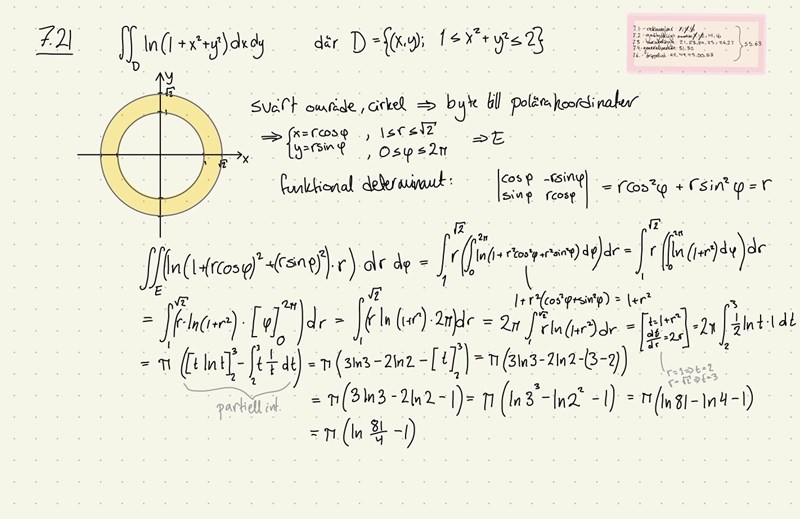 7.21 ∬_D ln(1+x²+y²)dxdy där D={(x,y); 1≤x²+y²≤2}
y
√2
1
1 √2 x
svårt område, cirkel ⇒ byte till polära koordinater
⇒ {x=rcosφ , 1≤r≤√2 ⇒E
y=rsinφ , 0≤φ≤2π
funktional determinant: |cosφ -rsinφ| = rcos²φ + rsin²φ = r
|sinφ rcosφ|
∬_E (ln(1+(rcosφ)²+(rsinφ)²)·r) dr dφ = ∫_1^√2 r(∫_0^2π ln(1+r²cos²φ+r²sin²φ)dφ)dr = ∫_1^√2 r(∫_0^2π ln(1+r²)dφ)dr
1+r²(cos²φ+sin²φ) = 1+r²
= ∫_1^√2 (r·ln(1+r²)·[φ]_0^2π)dr = ∫_1^√2 (r ln(1+r²)·2π)dr = 2π ∫_1^√2 r ln(1+r²)dr = [t=1+r² dt/dr=2r] = 2π ∫_2^3 1/2 ln t·1 dt
r=1⇒t=2
r=√2⇒t=3
= π([t ln t]_2^3 - ∫_2^3 t 1/t dt) = π(3ln3-2ln2-[t]_2^3) = π(3ln3-2ln2-(3-2))
partiell int.
= π(3ln3-2ln2-1) = π(ln3³-ln2²-1) = π(ln81-ln4-1)
= π(ln 81/4 -1)